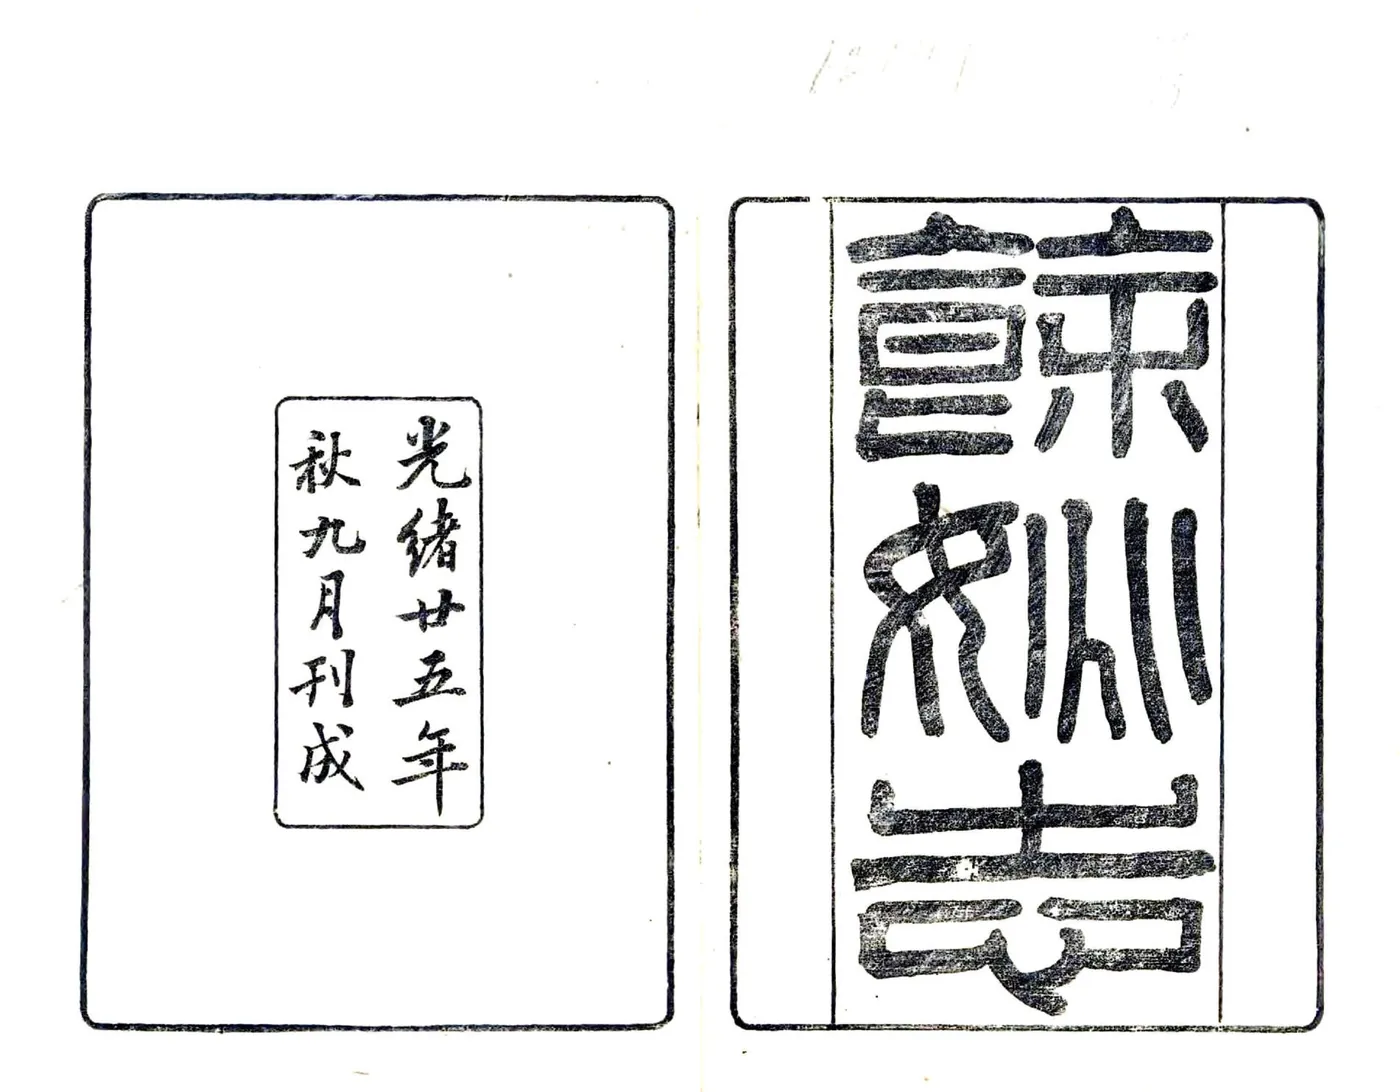 餘姚志
光緒廿五年
秋九月刊成